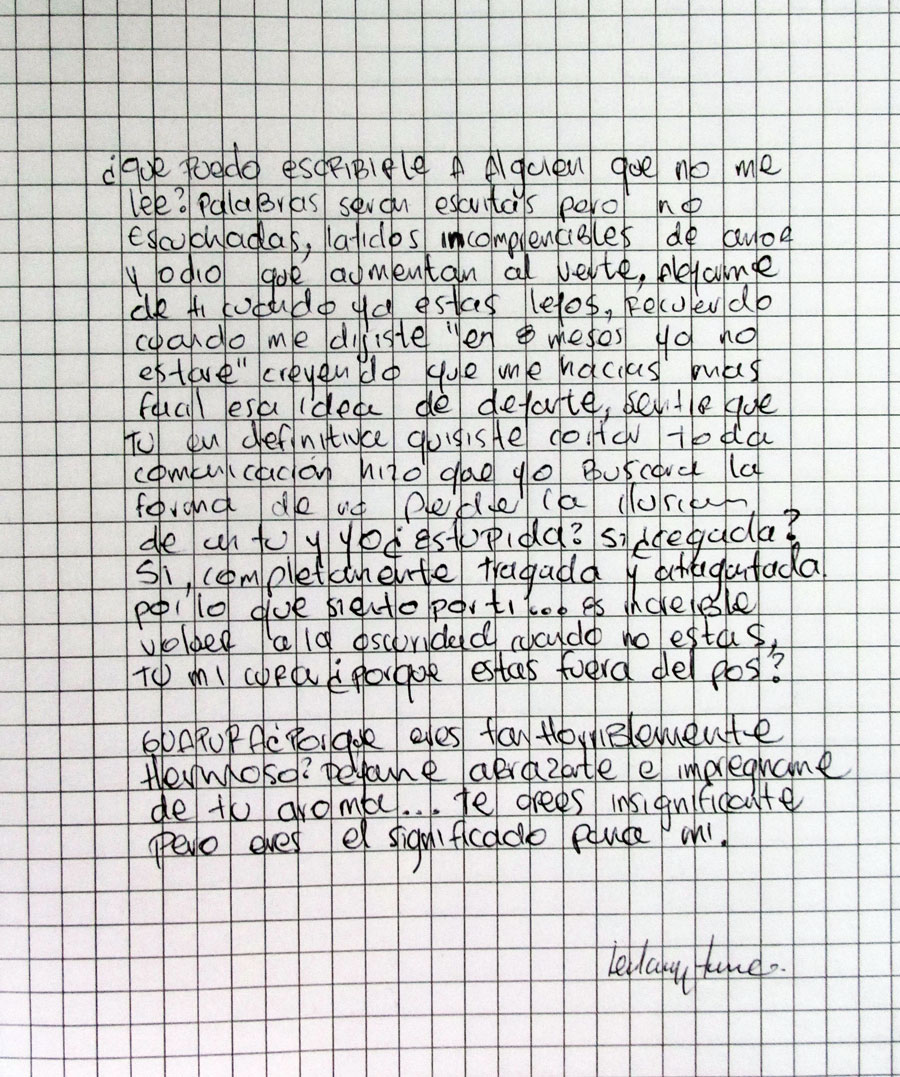 ¿que puedo escribirle a alguien que no me
lee? palabras seran escritas pero no
escuchadas, latidos incomprencibles de amor
y odio que aumentan al verte, Alejarme
de ti cuando ya estas lejos, recuerdo
cuando me dijiste "en 8 meses ya no
estare" creyendo que me hacias mas
facil esa idea de dejarte, sentir que
tu en definitiva quisiste cortar toda
comunicación hizo que yo Buscara la
forma de no perder la ilusion
de un tu y yo ¿estupida? si ¿cegada?
Si, completamente tragada y atragantada
por lo que siento por ti... es increible
volver a la oscuridad cuando no estas,
tu mi cura ¿porque estas fuera del pos?
GUAPURA ¿Porque eres tan Horriblemente
Hermoso? Dejame abrazarte e impregname
de tu aroma... te crees insignificante
pero eres el significado para mi.